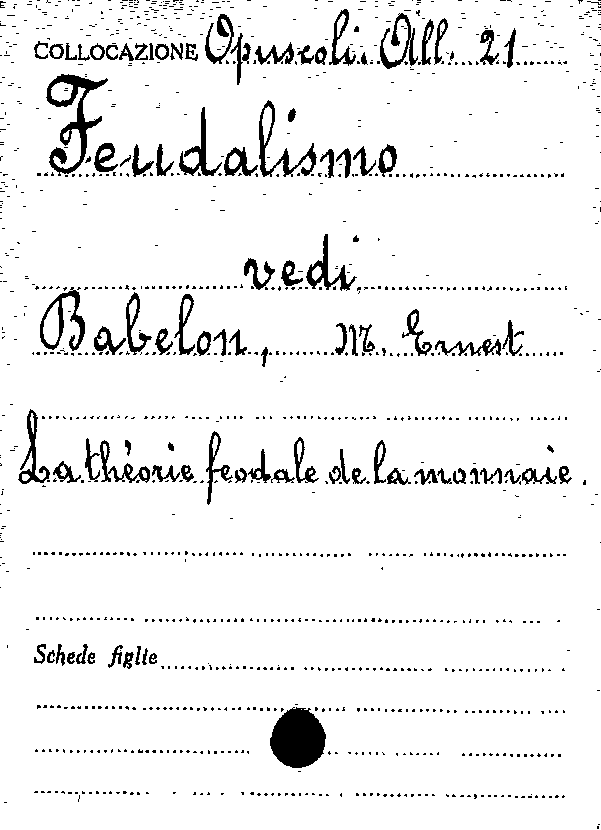 COLLOCAZIONE Opuscoli. All. 21
Feudalismo
vedi
Babelon, M. Ernest
La théorie feodale de la monnaie.
Schede figlie